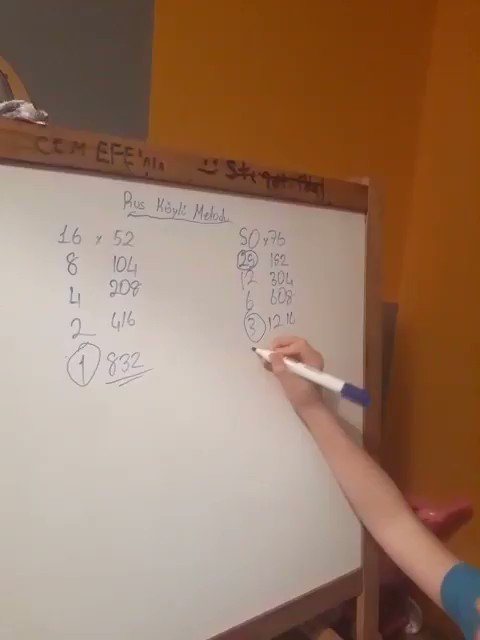 CEM EFE'nin
Rus Köylü Metodu
16 x 52
8 104
4 208
2 416
1 832
50 x 76
25 152
12 304
6 608
3 1216